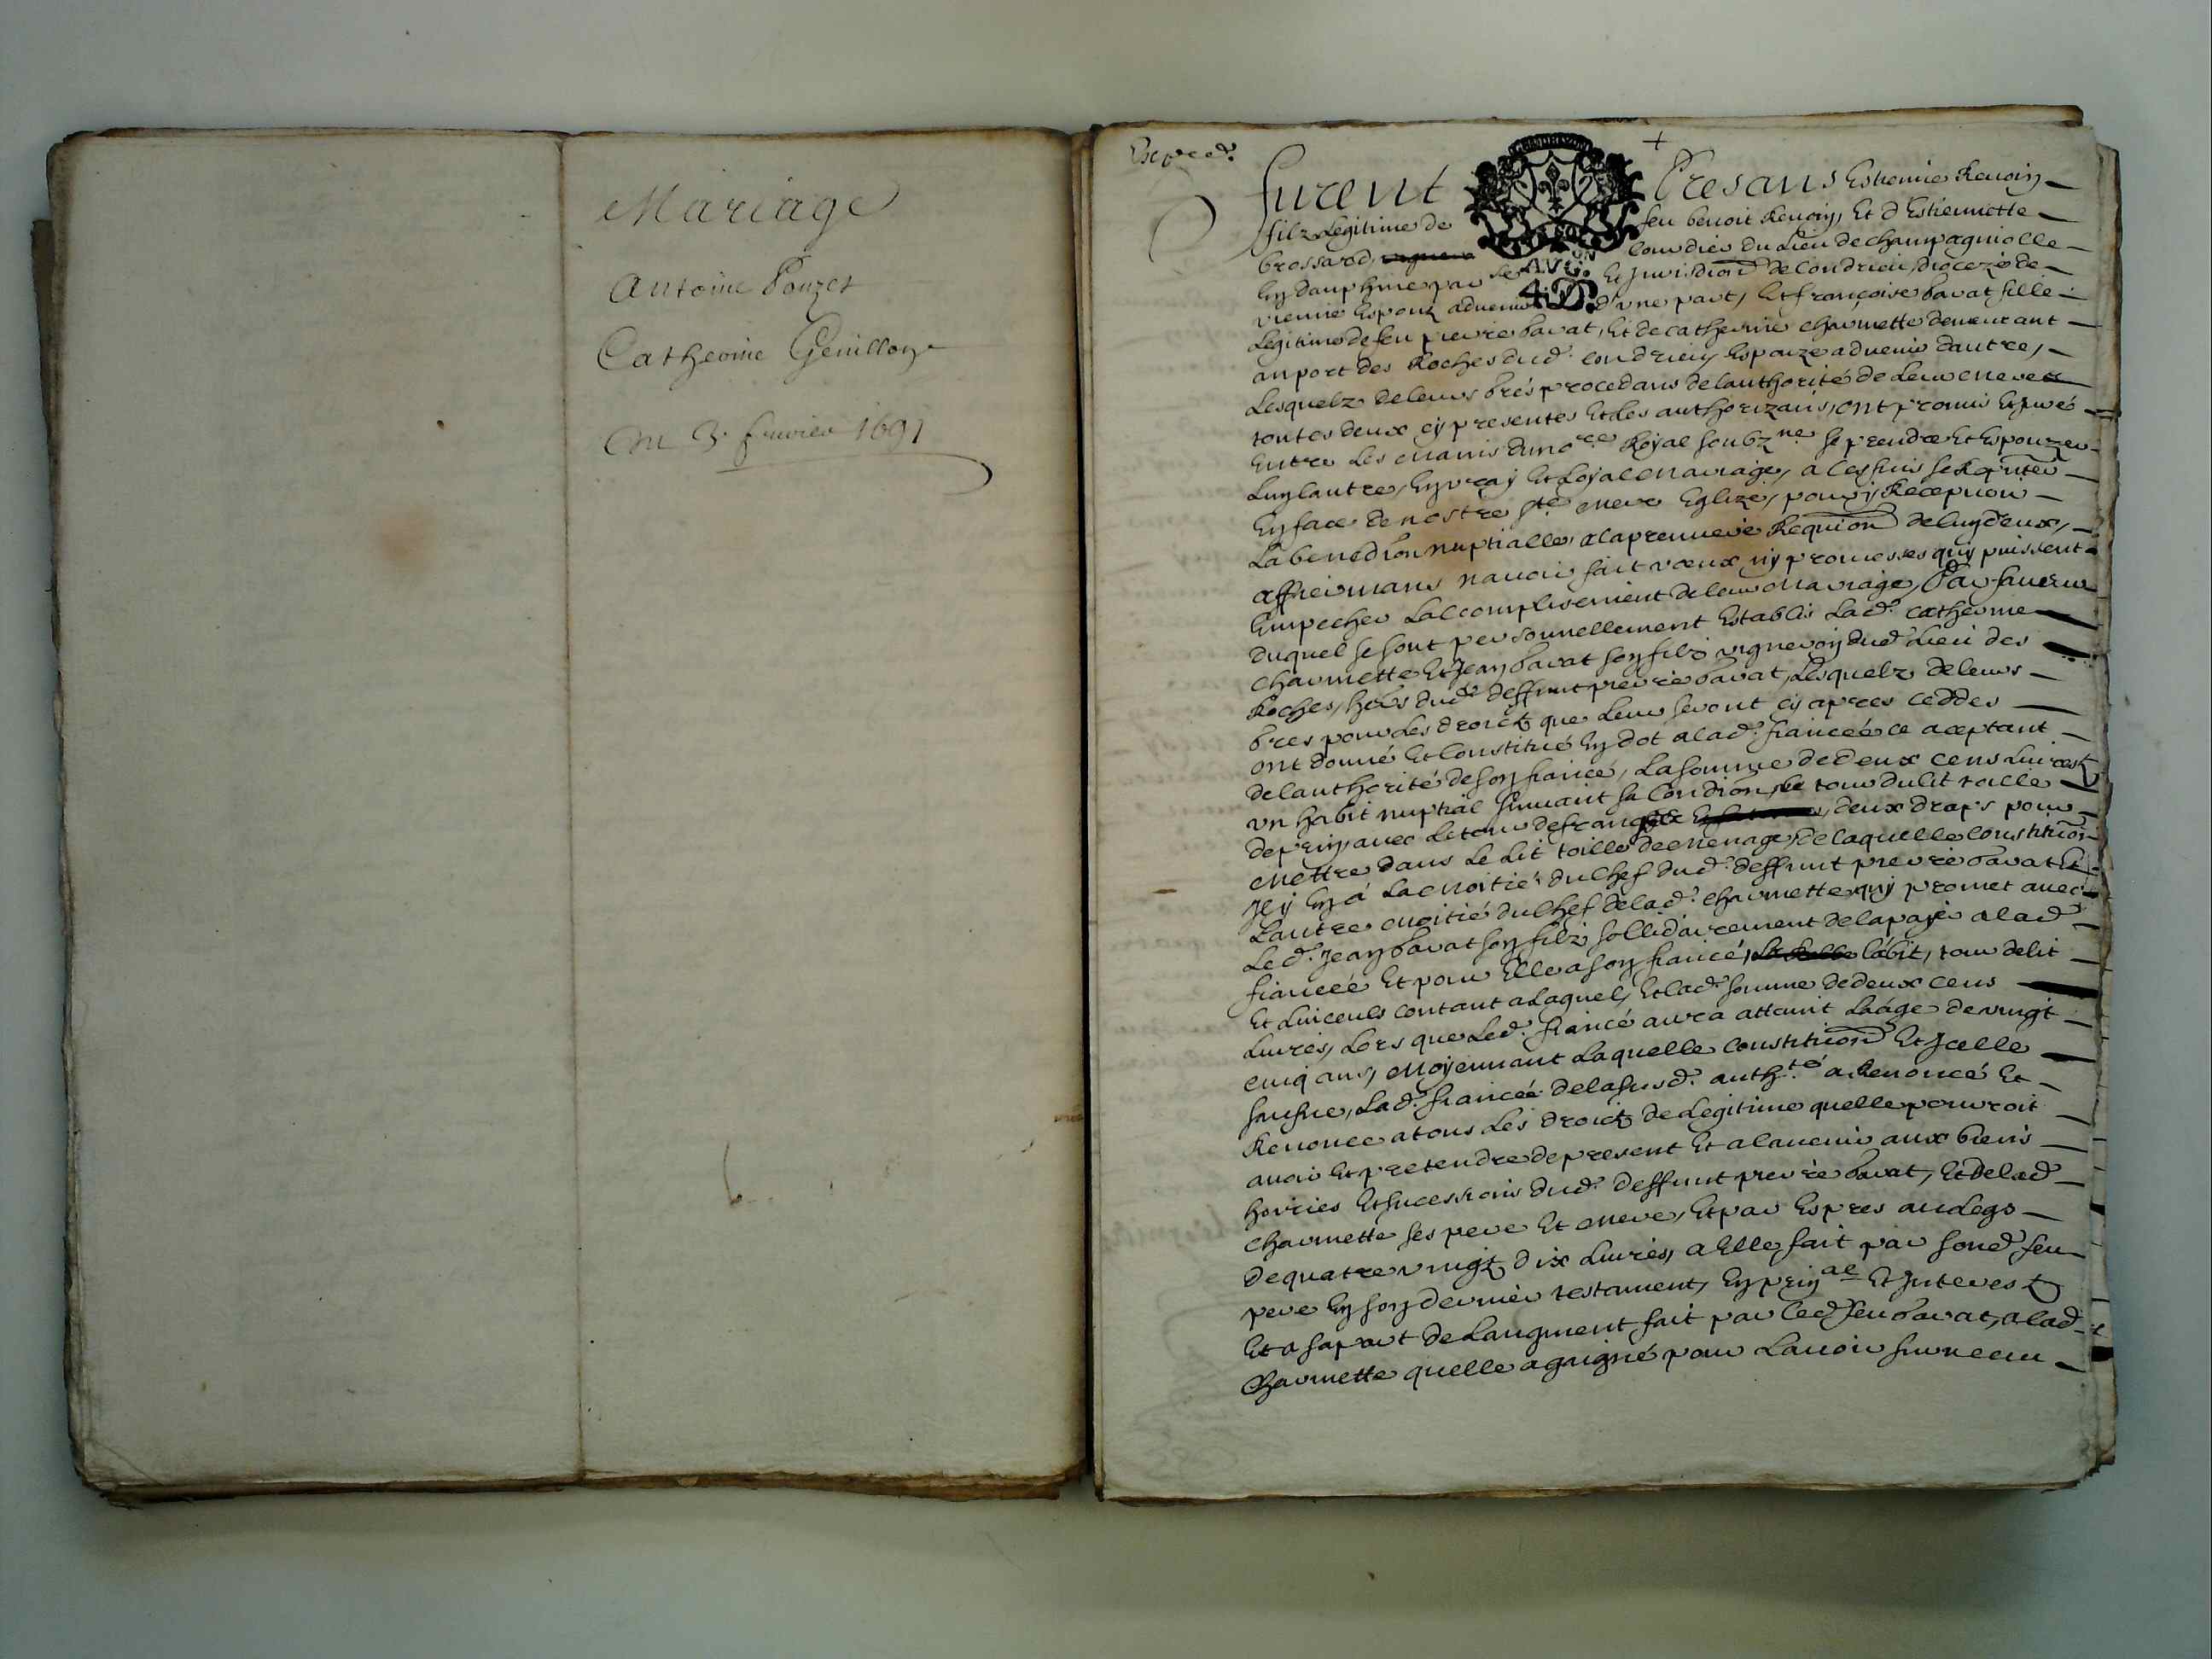 Mariage
Antoine Pouzet
Catherine Genillon
Du 3. fevrier 1691
furent Presans Estienne Renoin
filz legitime de feu benoit Renoin, Et d'Estiennette
brossard, Condrieu du Lieu de champagniolle
En dauphine par Et Jurisdion de Condrieu, dioceze de
vienne Espoux advenir d'vne part, Et françoise bavat fille
Legitime de feu pierre bavat, Et de catherine charmette demeurant
au port des Roches dud. condrieu, Espouze advenir dautre,
Lesquelz de leurs brés procedans de lauthorité de leur mere
toutes deux cy presentes Et les authorizans, ont promis Et juré
Entre les mains du no.re Royal soubz.ne se prendre Et Espouzer
Lun lautre, En vray Et loyal mariage, a ces fins se
En face de nostre s.te mere Eglize, pour y Recepuoir
La benediôn nuptialle, a la premiere Requiôn de lun deux,
affirmans nauoir fait vœux ny promesses quy puissent
Empecher Laccomplisement de leur mariage, Par faueur
duquel se sont personnellement Establis La d. catherine
charmette Et Jean bavat son filz vigneron dud. Lieu des
Roches, heôs dud. deffunt pierre bavat, Lesquelz de leurs
bres pour les droictz que leur seront cy apres ceddes
ont donné Et Constitué En dot a la d. fiancée ce aceptant
de lauthorité de son fiancé, La somme de deux cens liures
vn habit nuptial suiuant sa Condiôn, le tour du lit toille
de pein, auec le tour de frange, deux draps pour
mettre dans le lit toille de menage, de laquelle constituôn
Jl y En a La moitié du chef dud. deffunt pierre bavat Et
Lautre moitié du chef de la d. charmette quy promet auec
Le d. Jean bavat son filz sollidairement de la payer a la d.
fiancée Et pour Elle a son fiancé, labit, tour de lit
Et linceuls contant a Laquel, Et la d. somme de deux cens
Liures, Lors que Le d. fiancé aura attaint Laâge de vingt
cinq ans, moyennant Laquelle constituôn Et Jcelle
sauftue, La d. fiancée de la susd. auth.té a Renoncé Et
Renonce a tous Les droictz de Legitime quelle pourroit
auoir Et pretendre de present Et a laueni aux biens
hoiries Et sucessions dud. deffunt pierre bavat, Et de la d.
charmette ses pere Et mere, Et par Expres au Lego
de quatre vingtz dix Liures, a Elle fait par sond. feu
pere En son dernier testament, En prin.al Et Jnterestz
Et a sa part de Laugment fait par led. feu bavat, a la d.
charmette quelle a gaigné pour Lauoir suruecu